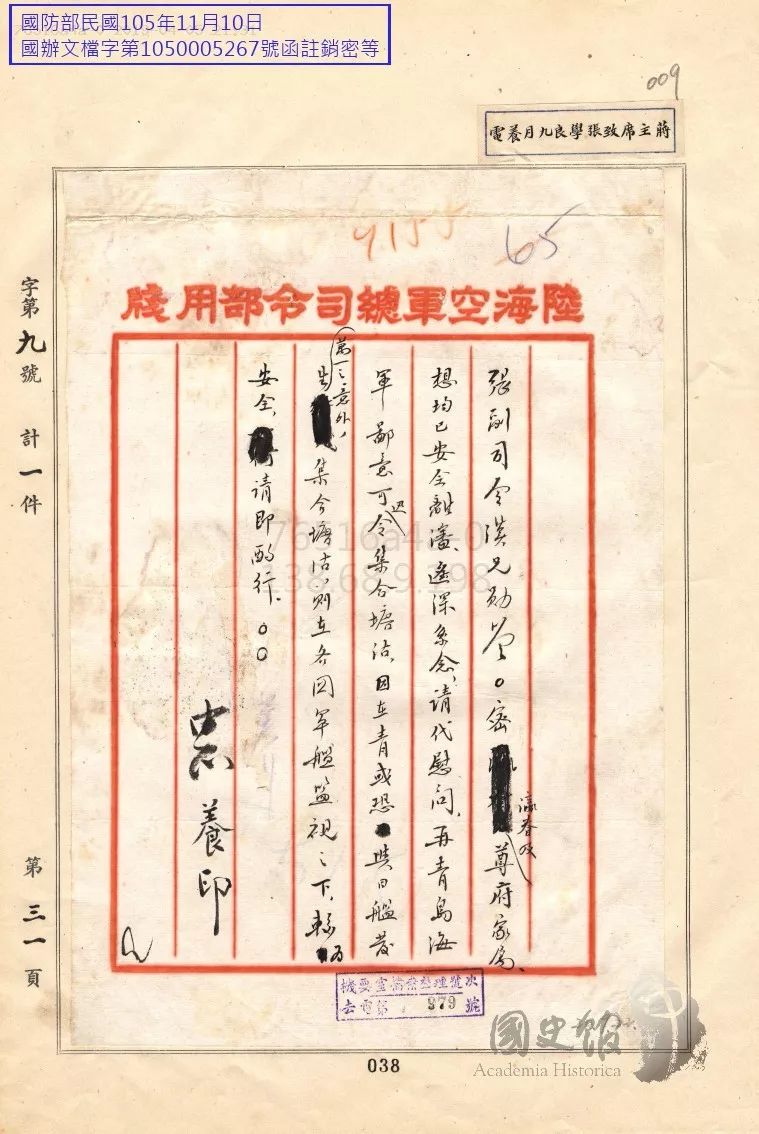 國防部民國105年11月10日
國辦文檔字第1050005267號函註銷密等
009
蔣主席致張學良九月養電
4155
65
陸海空軍總司令部用牋
張副司令漢兄勛鑒。密瀛眷及尊府家屬、
想均已安全離瀋、遙深系念、請代慰問、再青島海
軍鄙意可迅令集合塘沽、因在青或恐與日艦發
生萬一之意外、集合塘沽、則在各國軍艦監視之下、較為
安全、請即酌行。○○
中正養印
字第九號 計一件
第三一頁
機要室檔案整理號次
去電第 379 號
國史館
Academia Historica
038